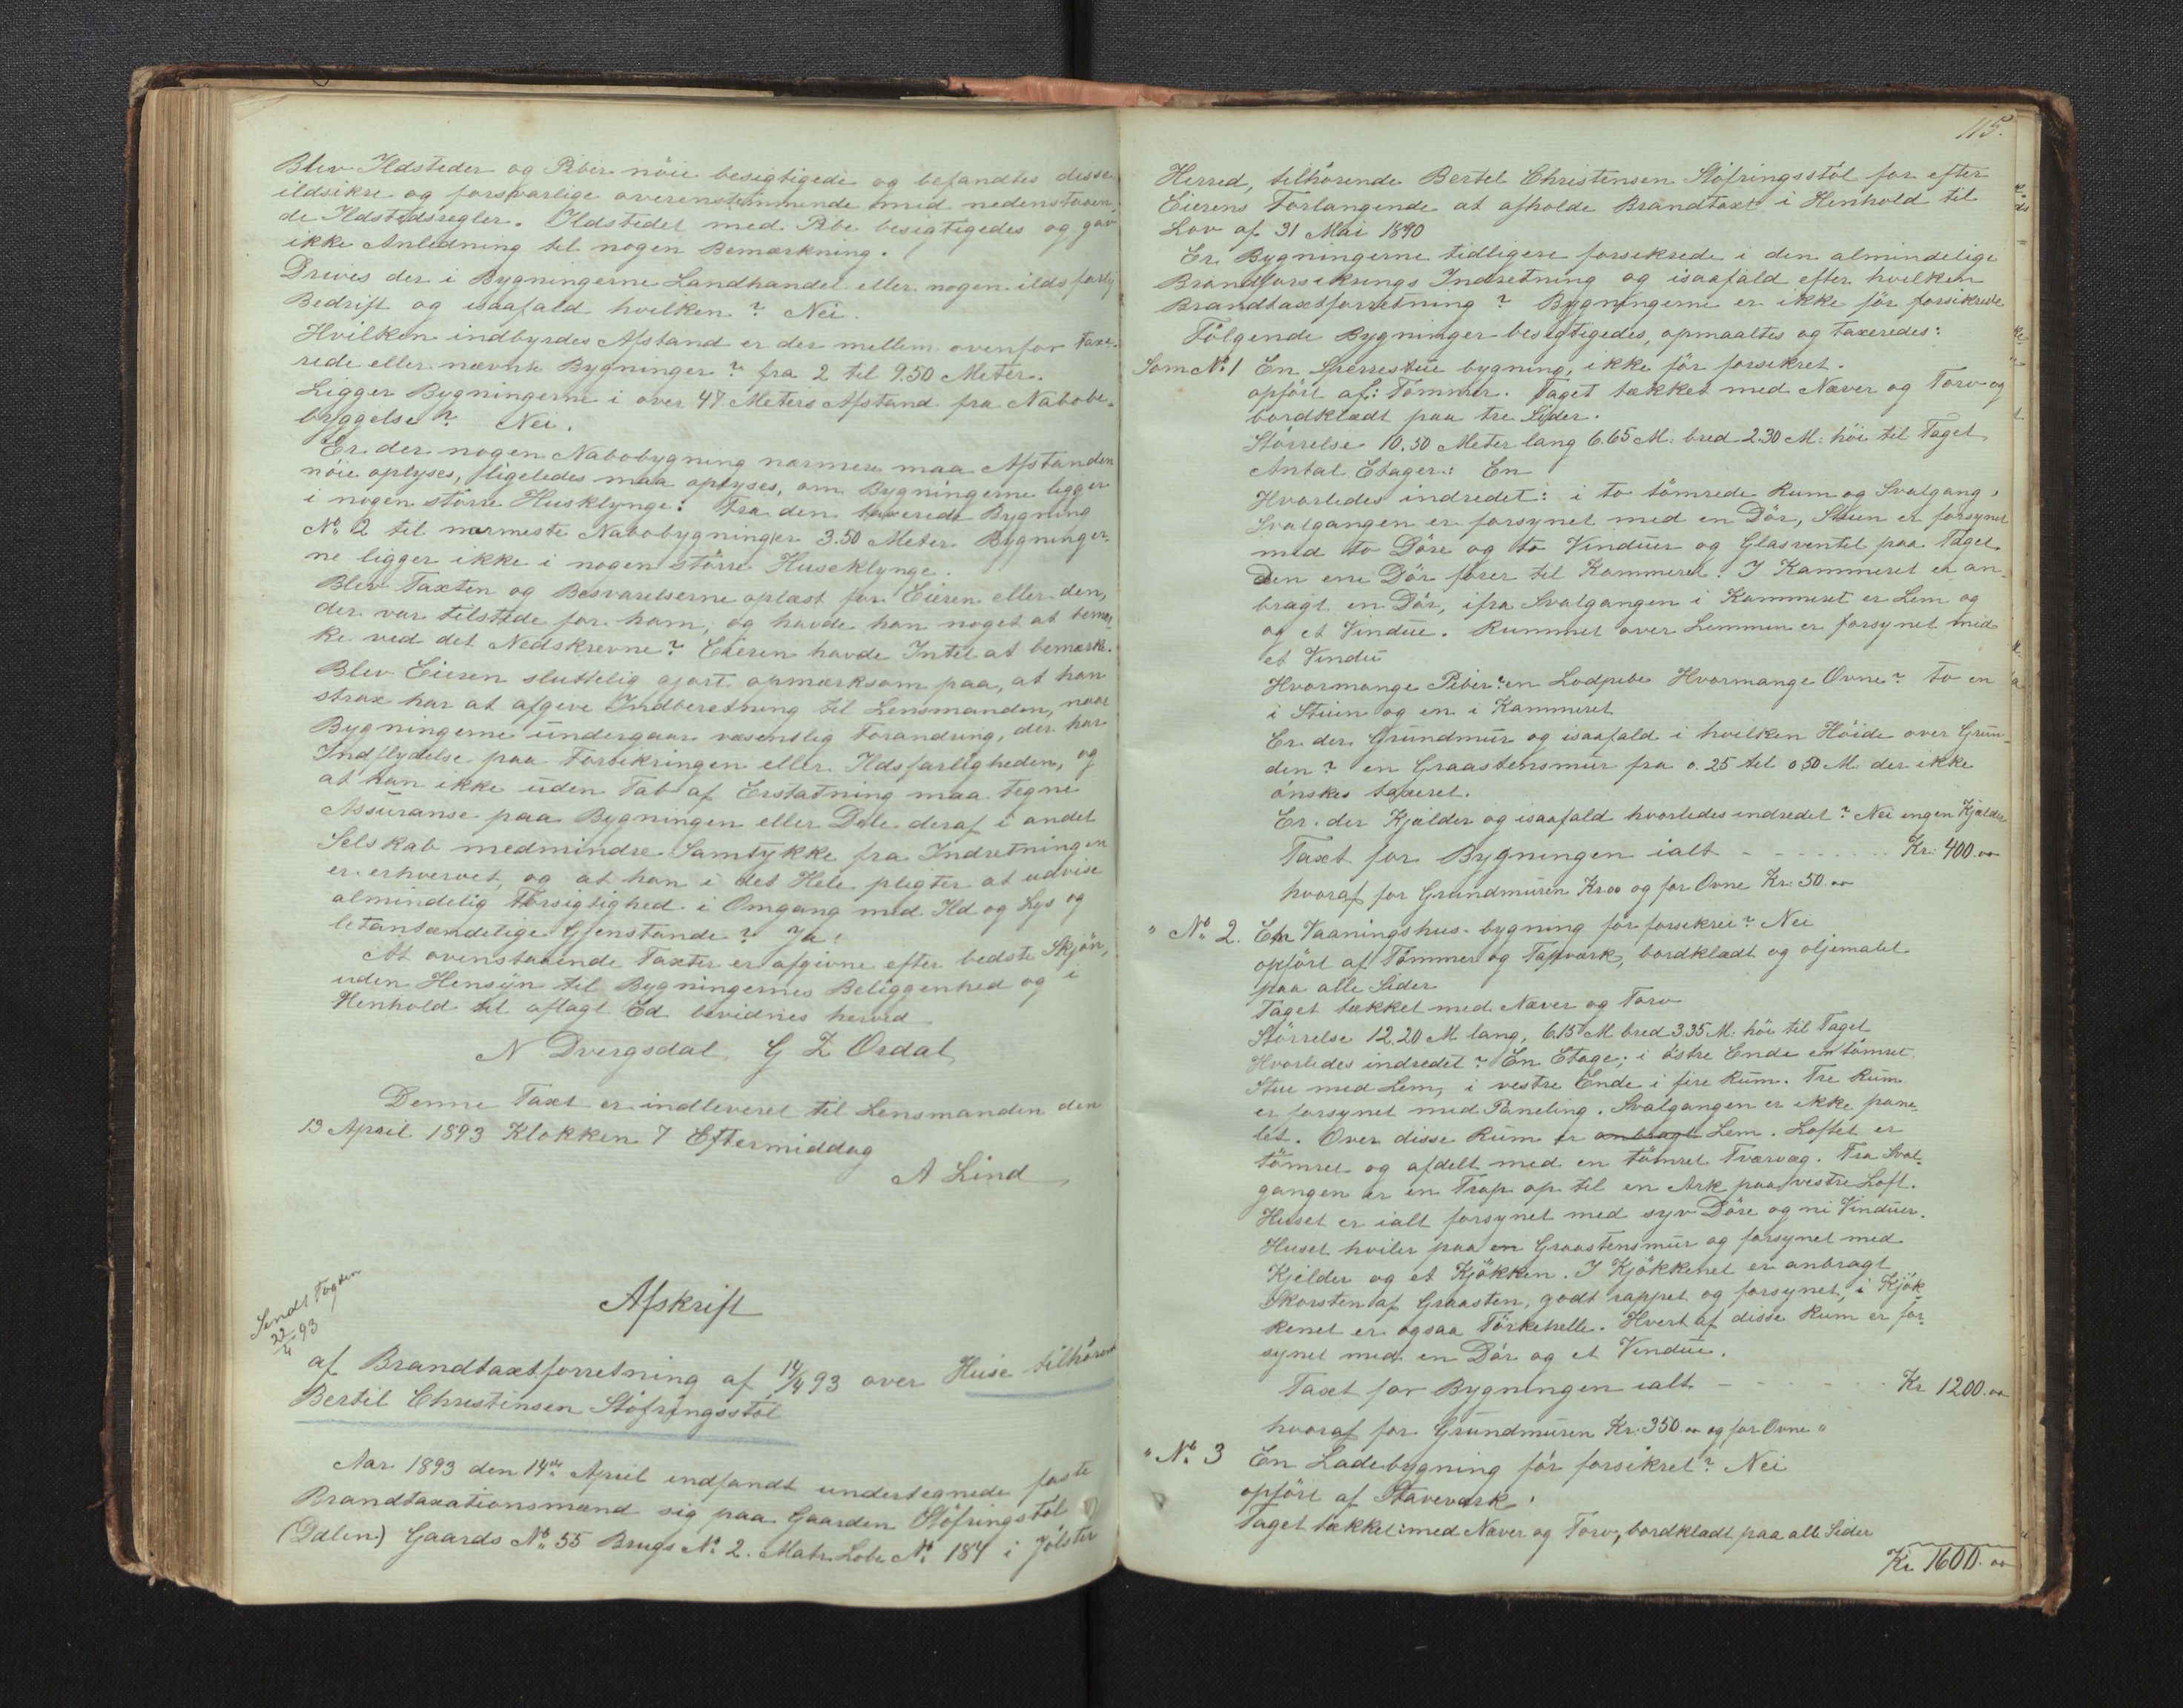 Blev Ildsteder og Piber nöie besigtigede og befandtes disse
ildsikre og forsvarlige overenstemmende med nedenstaaen-
de Ildstedsregler. Ildstedet med Pibe besigtigedes og gav
ikke Anledning til nogen Bemærkning.
Drives der i Bygningerne Landhandel eller nogen ildsfarlig
Bedrift og isaafald hvilken? Nei.
Hvilken indbyrdes Afstand er der mellem ovenfor taxe-
rede eller nævnte Bygninger? fra 2 til 9.50 Meter.
Ligger Bygningerne i over 47 Meters Afstand fra Nabobe-
byggelse? Nei.
Er der nogen Nabobygning nærmere maa Afstanden
nöie oplyses, ligeledes maa oplyses, om Bygningerne ligger
i nogen större Husklynge: Fra den taxerede Bygning
No 2 til nærmeste Nabobygning er 3.50 Meter. Bygninger-
ne ligger ikke i nogen större Huseklynge.
Blev Taxten og Besvarelserne oplæst for Eieren eller den,
der var tilstede for ham, og havde han noget at bemær-
ke ved det Nedskrevne? Eieren havde Intet at bemærke.
Blev Eieren sluttelig gjort opmærksom paa, at han
strax har at afgive Indberetning til Lensmanden, naar
Bygningerne undergaar væsentlig Forandring, der har
Indflydelse paa Forsikringen eller Ildsfarligheden, og
at han ikke uden Tab af Erstatning maa tegne
Assuranse paa Bygningen eller Dele deraf i andet
Selskab medmindre Samtykke fra Indretningen
er erhvervet, og at han i det Hele pligter at udvise
almindelig Forsigtighed i Omgang med Ild og Lys og
letantændelige Gjenstande? Ja!
At ovenstaaende Taxter er afgivne efter bedste Skjön,
uden Hensyn til Bygningernes Beliggenhed og i
Henhold til aflagt Ed bevidnes herved
N. Dvergsdal. G Z Ordal
Denne Taxt er indleveret til Lensmanden den
13 April 1893 Klokken 7 Eftermiddag
A Lind
Sendt Fogden
22/4 93
Afskrift
af Brandtaxtforretning af 14/4 93 over Huse tilhörende
Bertil Christensen Stöfringsstöl
Aar 1893 den 14de April indfandt undertegnede faste
Brandtaxationsmænd sig paa Gaarden Stöfringstöl
(Dalen) Gaards No 55 Brugs No 2. Matr. Lobe No 184 i Jölster
115.
Herred, tilhörende Bertel Christensen Stöfringsstöl for efter
Eierens Forlangende at afholde Brandtaxt i Henhold til
Lov af 31 Mai 1890
Er Bygningerne tidligere forsikrede i den almindelige
Brandforsikrings Indretning og isaafald efter hvilken
Brandtaxtforretning? Bygningerne er ikke för forsikrede
Fölgende Bygninger besigtigedes, opmaaltes og taxeredes:
Som No 1 En Sperrestue bygning, ikke för forsikret.
opfört af: Tömmer. Taget tækket med Næver og Torv og
bordklædt paa tre Sider.
Störrelse 10.50 Meter lang 6.65 M. bred 2.30 M. höi til Taget
Antal Etager: En
Hvorledes indredet: i to tömrede Rum og Svalgang,
Svalgangen er forsynet med en Dör, Stuen er forsynet
med to Döre og to Vinduer og Glasventil paa Taget
Den ene Dör förer til Kammeret. I Kammeret er an-
bragt en Dör, ifra Svalgangen i Kammeret er Lem og
og et Vindue. Rummet over Lemmen er forsynet med
et Vindu
Hvormange Piber? en Lodpibe Hvormange Ovne? to en
i Stuen og en i Kammeret
Er der Grundmur og isaafald i hvilken Höide over Grun-
den? en Graastensmur fra 0.25 til 0.50 M. der ikke
önskes taxeret.
Er der Kjælder og isaafald hvorledes indredet? Nei ingen Kjælder
Taxt for Bygningen ialt - - - - - - - Kr. 400.00
hvoraf for Grundmuren Kr 00 og for Ovne Kr: 50.00
" No 2. En Vaaningshus-bygning för forsikret? Nei
opfört af Tömmer og Tapværk, bordklædt og oljemalet
paa alle Sider
Taget tækket med Næver og Torv
Störrelse 12.20 M lang, 6.15 M bred 3.35 M. höi til Taget
Hvorledes indredet? En Etage; i östre Ende en tömret
Stue med Lem, i vestre Ende i fire Rum. Tre Rum
er forsynet med Paneling. Svalgangen er ikke pane-
let. Over disse Rum er anbragt Lem. Loftet er
tömret og afdelt med en tömret Tværvæg. Fra Sval-
gangen er en Trap op til en Ark paa vestre Loft.
Huset er ialt forsynet med syv Döre og ni Vinduer.
Huset hviler paa en Graastensmur og forsynet med
Kjelder og et Kjökken. I Kjökkenet er anbragt
Skorsten af Graasten, godt rappet og forsynet, i Kjök-
kenet er ogsaa Törkehelle. Hvert af disse Rum er for-
synet med en Dör og et Vindue.
Taxt for Bygningen ialt - - - - - - Kr 1200.00
hvoraf for Grundmuren Kr: 350.00 og for Ovne "
" No 3 En Ladebygning för forsikret? Nei
opfört af Staveværk.
Taget tækket med Næver og Torv, bordklædt paa alle Sider
Kr. 1600.00